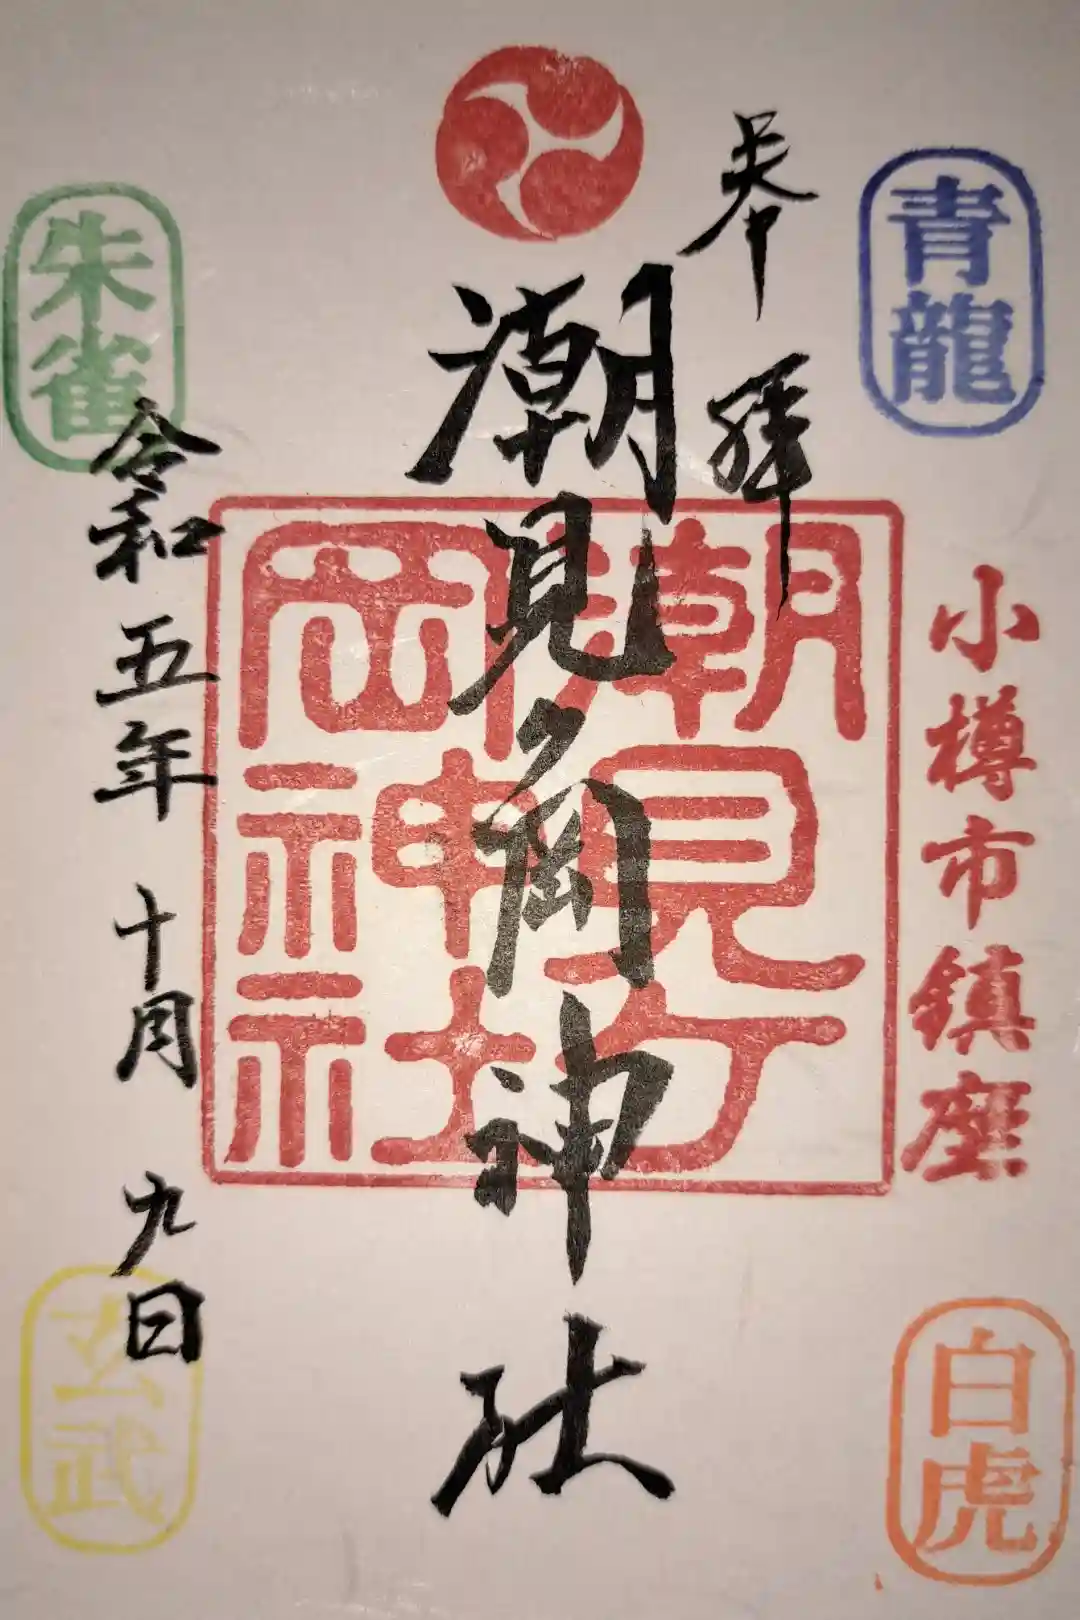 奉拝
青龍
小樽市鎮座
白虎
潮見ヶ岡神社
潮見ケ
岡神社
朱雀
令和五年十月九日
玄武